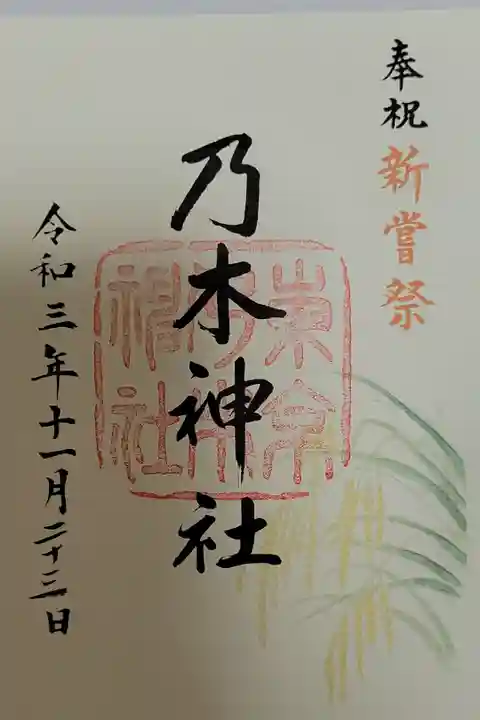 奉祝 新嘗祭
乃木神社
東京乃木神社
令和三年十一月二十三日